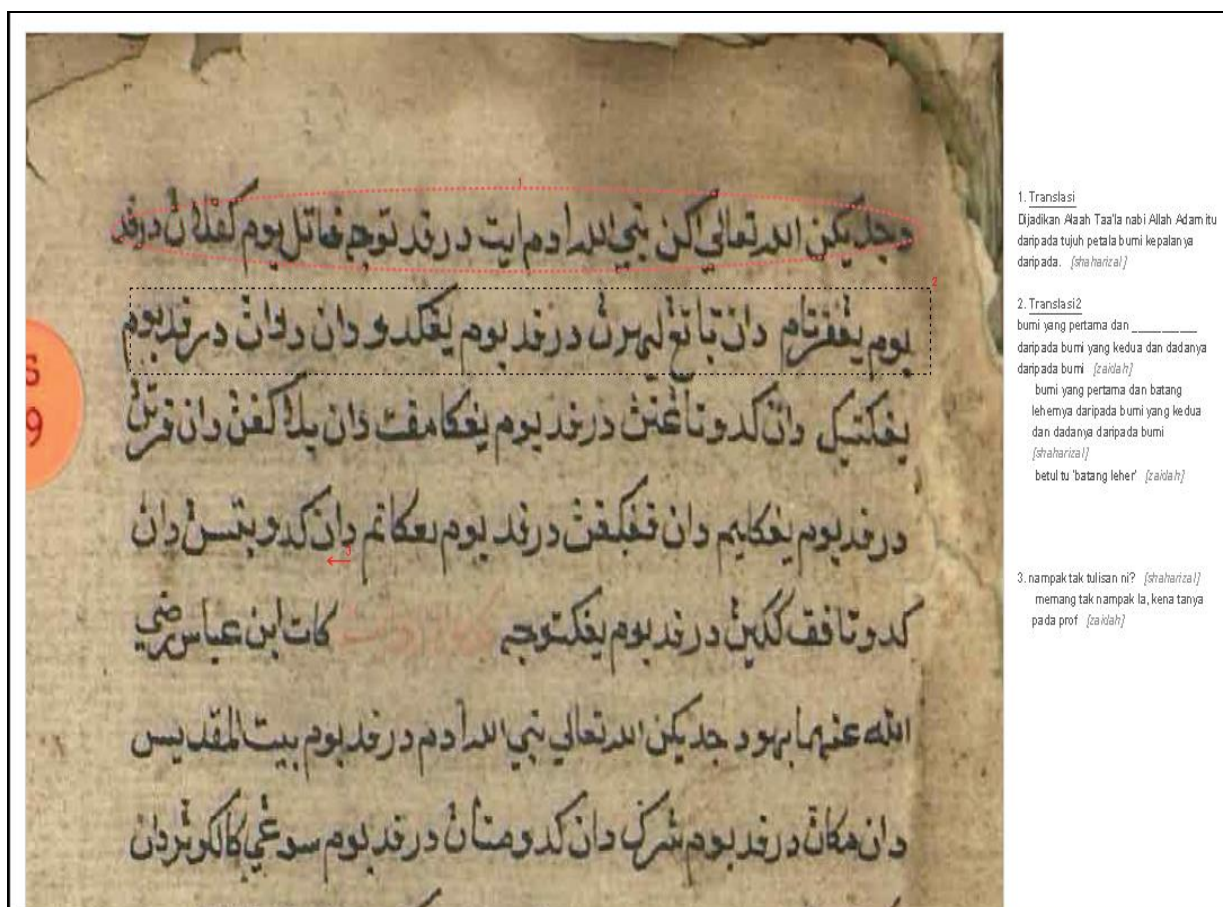 دجديكن الله تعالى اكن نبي الله ادم ايت درفد توجه فتل بوم كفلاڽ درفد
بوم يڠفرتام دان باتڠ ليهرڽ درفد بوم يڠكدو دان دداڽ درفد بوم
يڠكتيك دان كدو تاڠنڽ درفد بوم يڠكامفت دان بلاكڠڽ دان فرتڽ
درفد بوم يڠكليم دان درفد بوم يڠكانم دان كدو بتسڽ دان
كدو تافق ككيڽ درفد بوم يڠكتوجه كات ابن عباس رضي
الله عنهما بهو دجديكن الله تعالى نبي الله ادم درفد بوم بيت المقديس
دان مكاڽ درفد بوم شرك دان كدو متاڽ درفد بوم سوڠي كالكوثر دان
1
2
3
S
9
1. Translasi
Dijadikan Alaah Taa'la nabi Allah Adam itu
daripada tujuh petala bumi kepalanya
daripada. [shaharizal]
2. Translasi2
bumi yang pertama dan ___________
daripada bumi yang kedua dan dadanya
daripada bumi [zaidah]
bumi yang pertama dan batang
lehernya daripada bumi yang kedua
dan dadanya daripada bumi
[shaharizal]
betul tu 'batang leher' [zaidah]
3. nampak tak tulisan ni? [shaharizal]
memang tak nampak la, kena tanya
pada prof [zaidah]